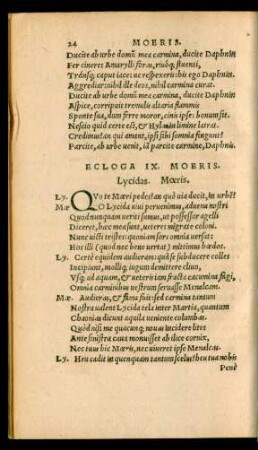 24 MOERIS.
Ducite ab urbe domũ mea carmina, ducite Daphnin
Fer cineres Amarylli foras, riuóq; fluenti,
Trãnsq; caput iace: ne respexeris: his ego Daphnin
Aggrediar: nihil ille deos, nihil carmina curat.
Ducite ab urbe domũ mea carmina, ducite Daphnin
Aspice, corripuit tremulis altaria flammis
Sponte sua, dum ferre moror, cinis ipse: bonum sit.
Nescio quid certe est, & Hylas in limine latrat.
Credimus? an qui amant, ipsi sibi somnia fingunt?
Parcite, ab urbe uenit, iã parcite carmina, Daphnis.
ECLOGA IX. MOERIS.
Lycidas. Mœris.
Ly. QVo te Mœri pedes? an quò uia ducit, in urbẽ?
Mœ O Lycida uiui peruenimus, aduena nostri
Quod nunquam ueriti sumus, ut possessor agelli
Diceret, hæc mea sunt, ueteres migrate coloni.
Nunc uicti tristes: quoniam fors omnia uersat:
Hos illi (quod nec bene uertat) mittimus hœdos.
Ly. Certè equidem audieram: quà se subducere colles
Incipiunt, molliq; iugum demittere cliuo,
Vsq; ad aquam, & ueteris iam fracta cacumina fagi,
Omnia carminibus uestrum seruasse Menalcam.
Mœ. Audieras, & fama fuit: sed carmina tantum
Nostra ualent Lycida tela inter Martia, quantum
Chaonias dicunt aquila ueniente columbas.
Quòd nisi me quacunq; nouas incidere lites
Ante sinistra caua monuisset ab ilice cornix,
Nec tuus hic Mœris, nec uiueret ipse Menalcas.
Ly. Heu cadit in quenquam tantum scelus? heu tua nobis
Penè